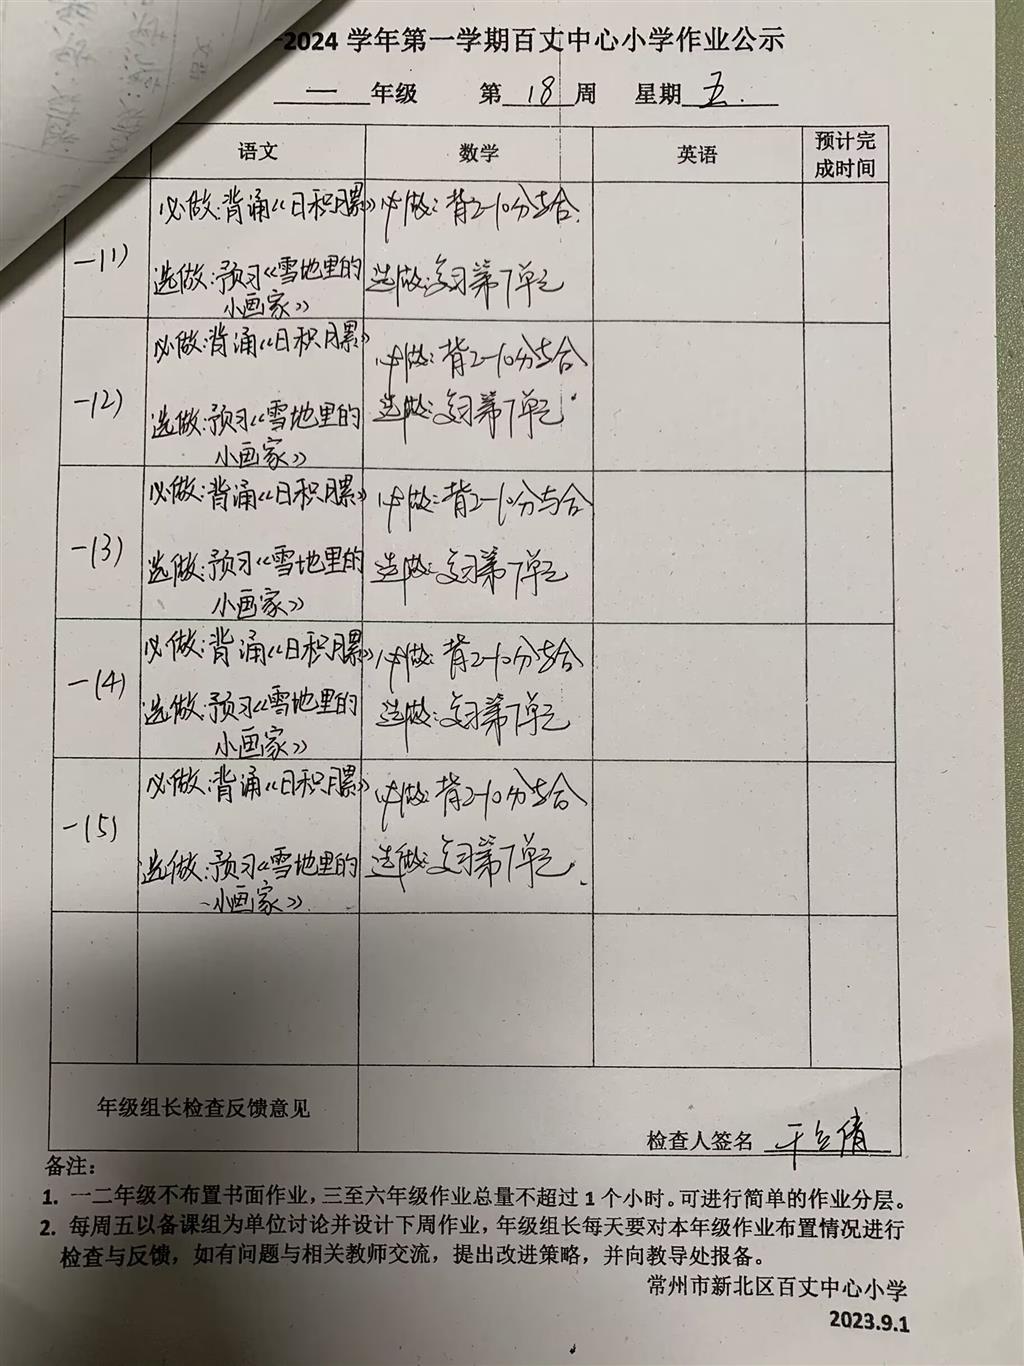 -2024 学年第一学期百丈中心小学作业公示
一 年级 第 18 周 星期 五.
语文 数学 英语 预计完成时间
一(1)
必做:背诵《日积月累》 必做:背2-10分与合.
选做:预习《雪地里的 选做:复习第7单元
小画家》
一(2)
必做:背诵《日积月累》 必做:背2-10分与合
选做:预习《雪地里的 选做:复习第7单元.
小画家》
一(3)
必做:背诵《日积月累》 必做:背2-10分与合
选做:预习《雪地里的 选做:复习第7单元
小画家》
一(4)
必做:背诵《日积月累》 必做:背2-10分与合
选做:预习《雪地里的 选做:复习第7单元
小画家》
一(5)
必做:背诵《日积月累》 必做:背2-10分与合
选做:预习《雪地里的 选做:复习第7单元.
小画家》
年级组长检查反馈意见
检查人签名
备注:
1. 一二年级不布置书面作业，三至六年级作业总量不超过 1 个小时。可进行简单的作业分层。
2. 每周五以备课组为单位讨论并设计下周作业，年级组长每天要对本年级作业布置情况进行
检查与反馈，如有问题与相关教师交流，提出改进策略，并向教导处报备。
常州市新北区百丈中心小学
2023.9.1